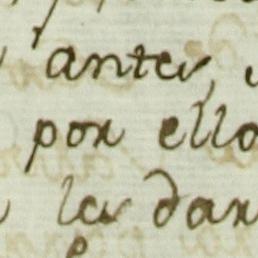 antes,
por ello
les dan